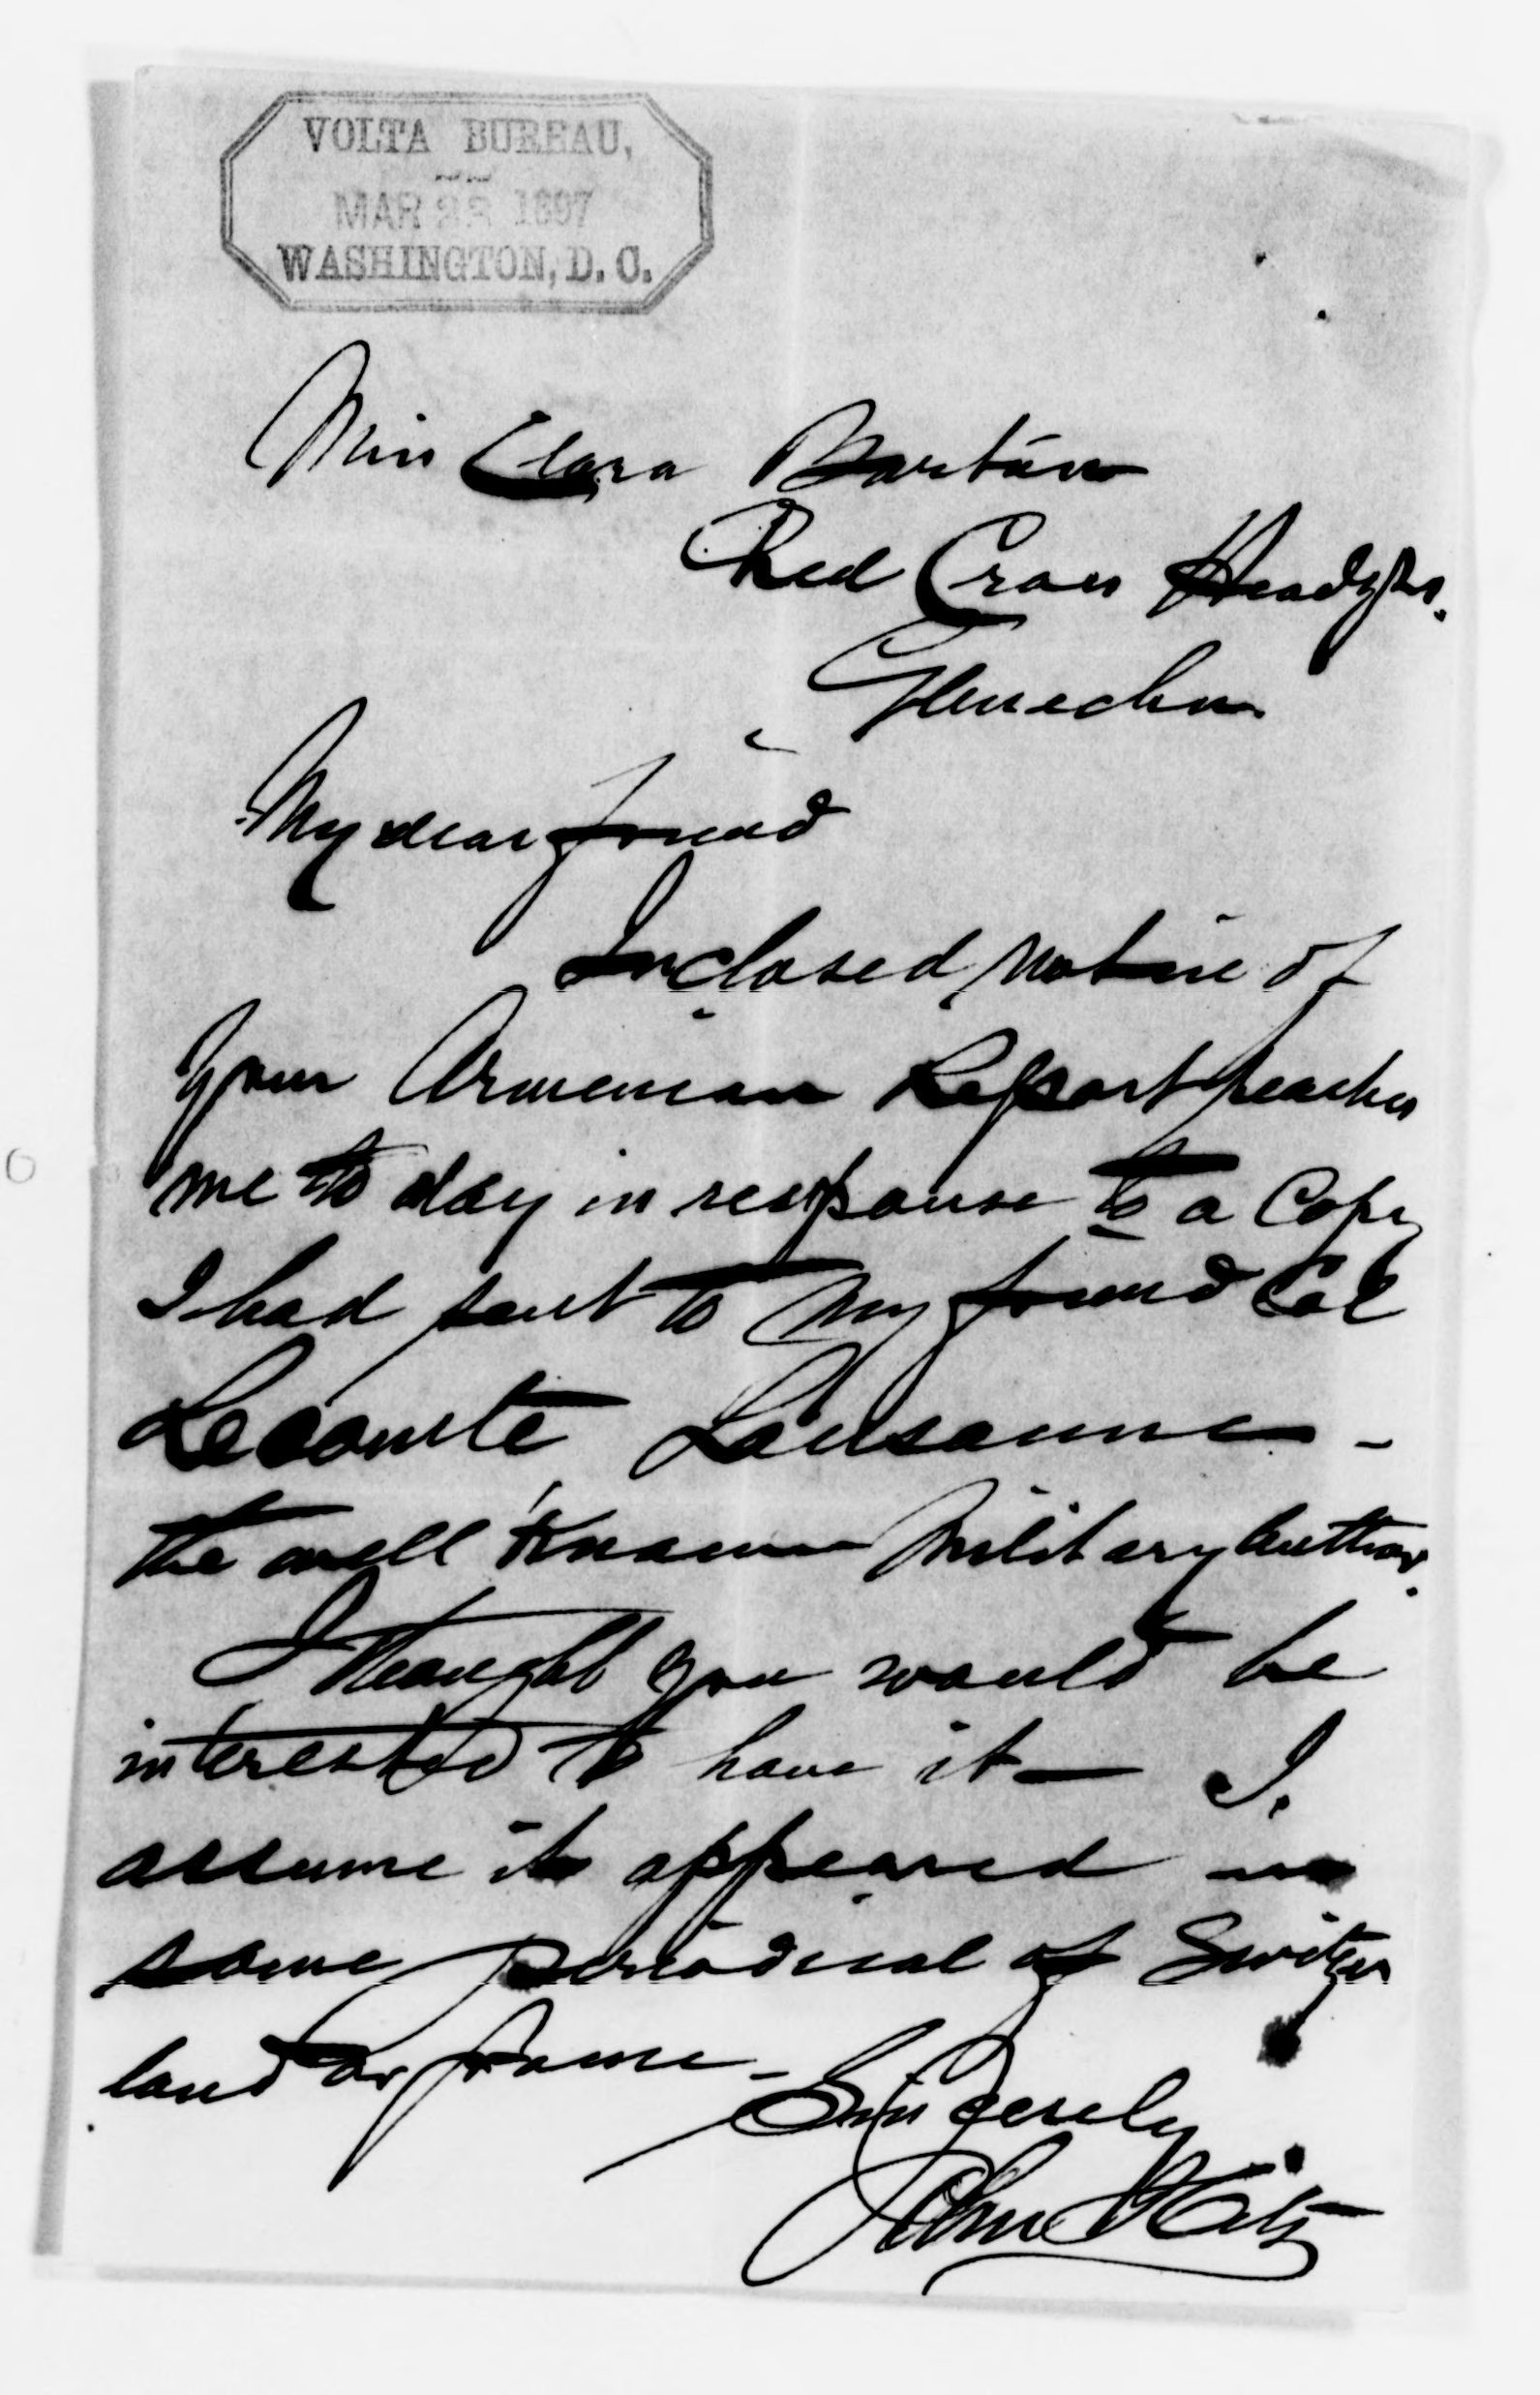 VOLTA BUREAU,
MAR 1897
WASHINGTON, D. C.
Miss Clara Barton
Red Cross Headqrs.
Glenecho
My dear friend
Inclosed notice of
your Armenian Report reaches
me to day in response to a Copy
I had sent to my friend Col
Lecomte Lausanne -
the well known Military Author.
I thought you would be
interested to have it — I
assume it appeared in
some periodical of Switzer
land or France -
Sincerely
John Hitz